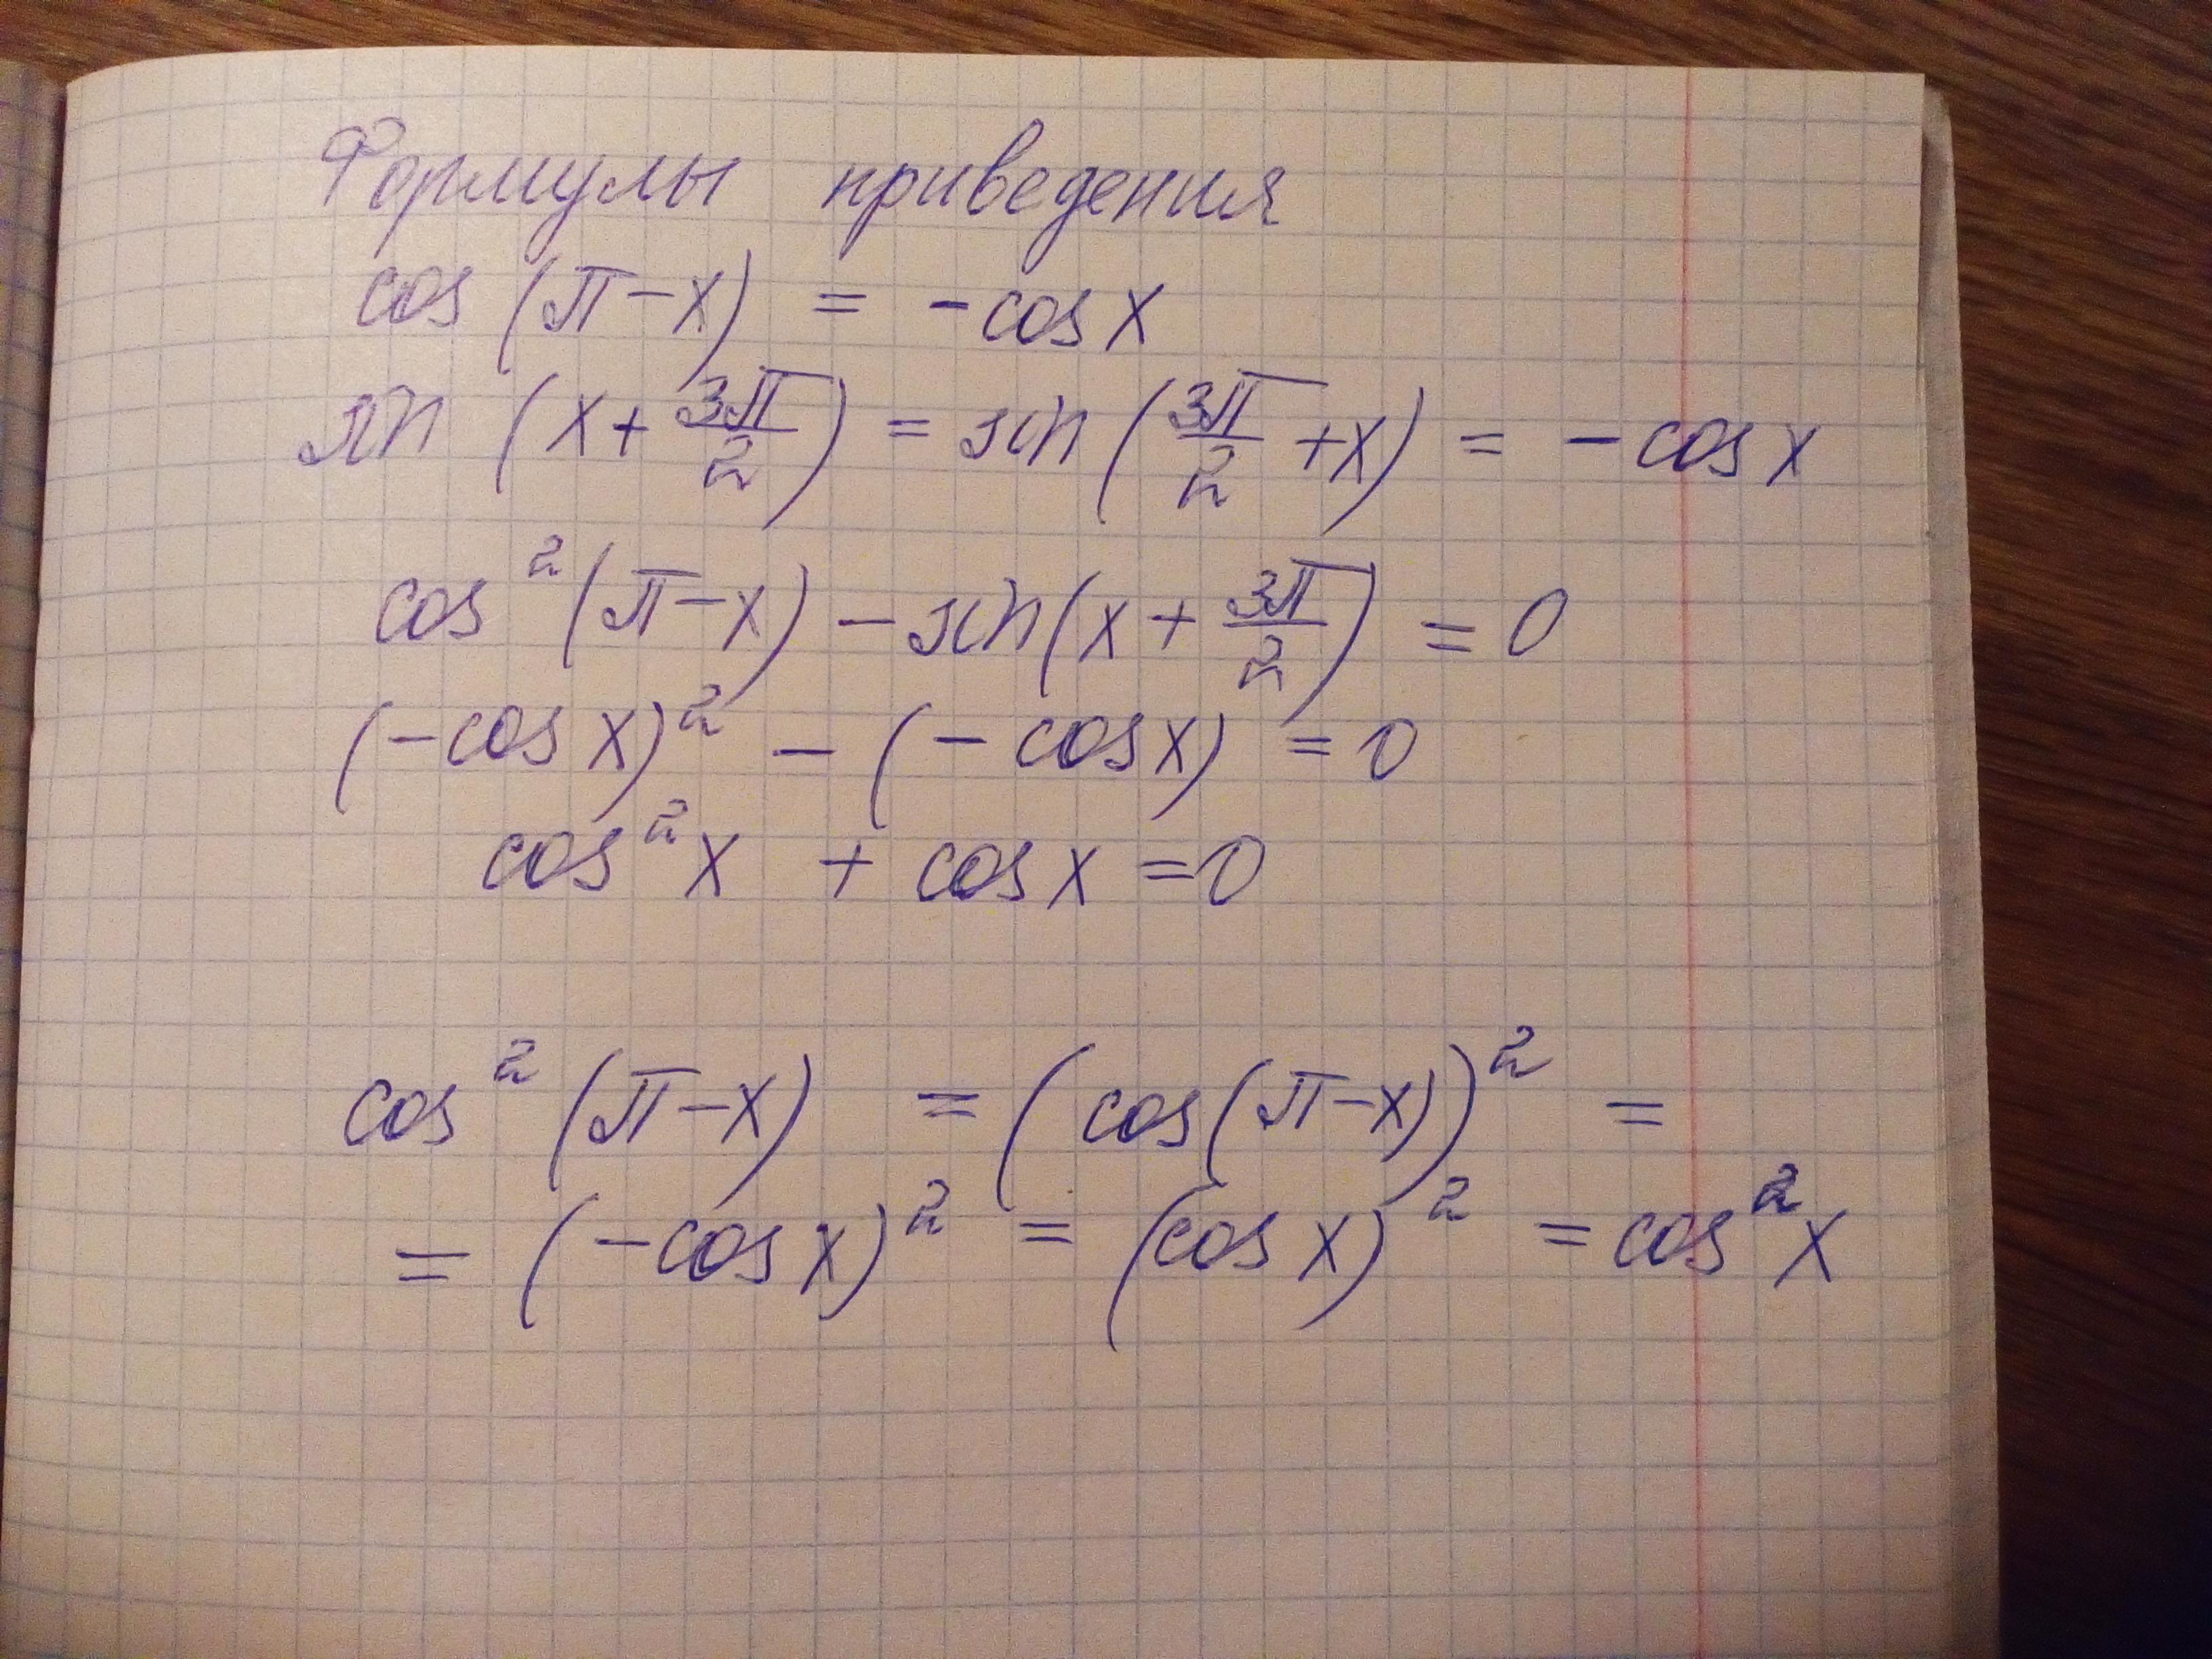 Формулы приведения
cos (π - x) = - cos x
sin (x + 3π/2) = sin (3π/2 + x) = - cos x
cos² (π - x) - sin (x + 3π/2) = 0
(- cos x)² - (- cos x) = 0
cos² x + cos x = 0
cos² (π - x) = (cos (π - x))² =
= (- cos x)² = (cos x)² = cos² x